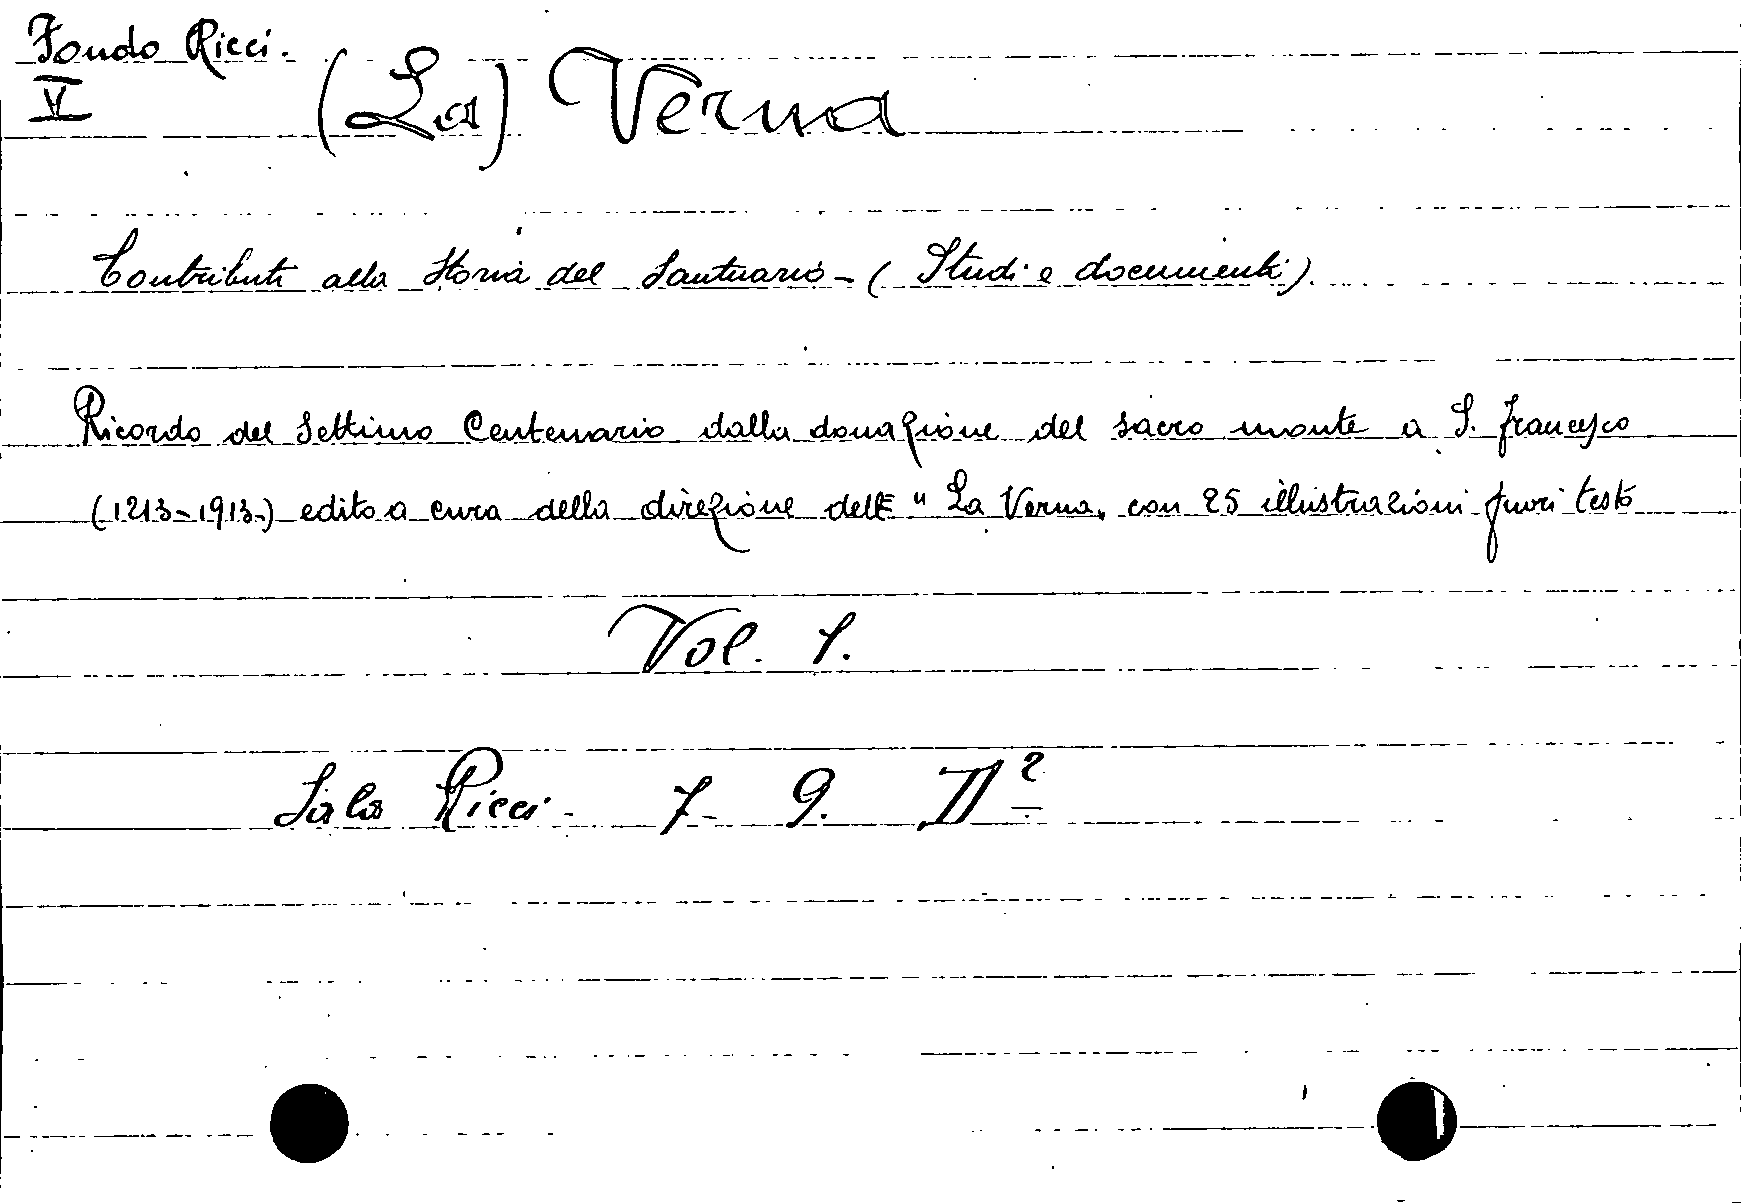 Fondo Ricci.
V
(La) Verna
Contributi alla Storia del Santuario - (Studi e documenti).
Ricordo del Settimo Centenario dalla donazione del sacro monte a S. Francesco
(1213-1913-) edito a cura della direzione delle "La Verna„ con 25 illustrazioni fuori testo
Vol. 1.
Sala Ricci - 7- 9. II²